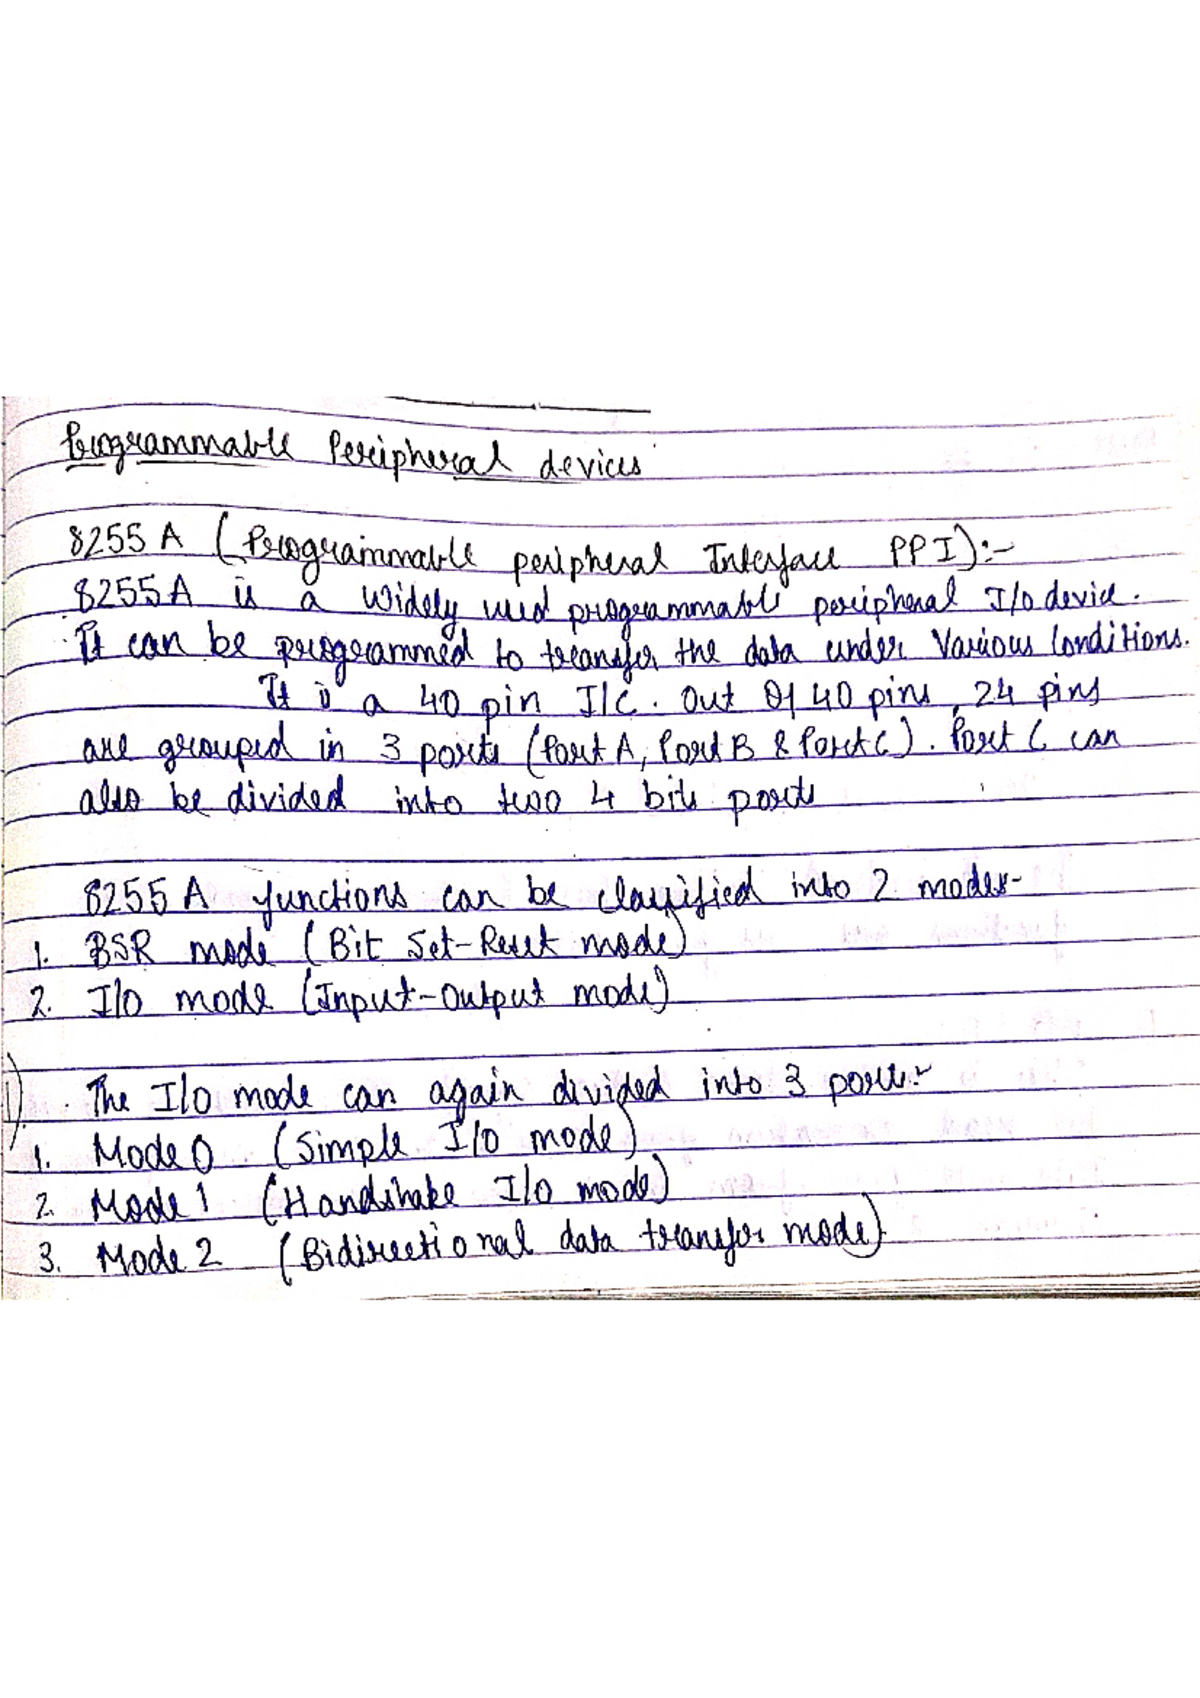 Programmable Peripheral devices
8255 A (Programmable peripheral Interface PPI):-
8255A is a widely used programmable peripheral I/o device.
It can be programmed to transfer the data under Various Conditions.
It is a 40 pin I/C. Out Of 40 pins, 24 pins
are grouped in 3 ports (Port A, Port B & Port C). Port C can
also be divided into two 4 bits ports
8255 A functions can be classified into 2 modes-
1. BSR mode (Bit Set-Reset mode)
2. I/O mode (Input-Output mode)
1) The I/O mode can again divided into 3 ports:-
1. Mode 0 (Simple I/O mode)
2. Mode 1 (Handshake I/o mode)
3. Mode 2 (Bidirectional data transfer mode)